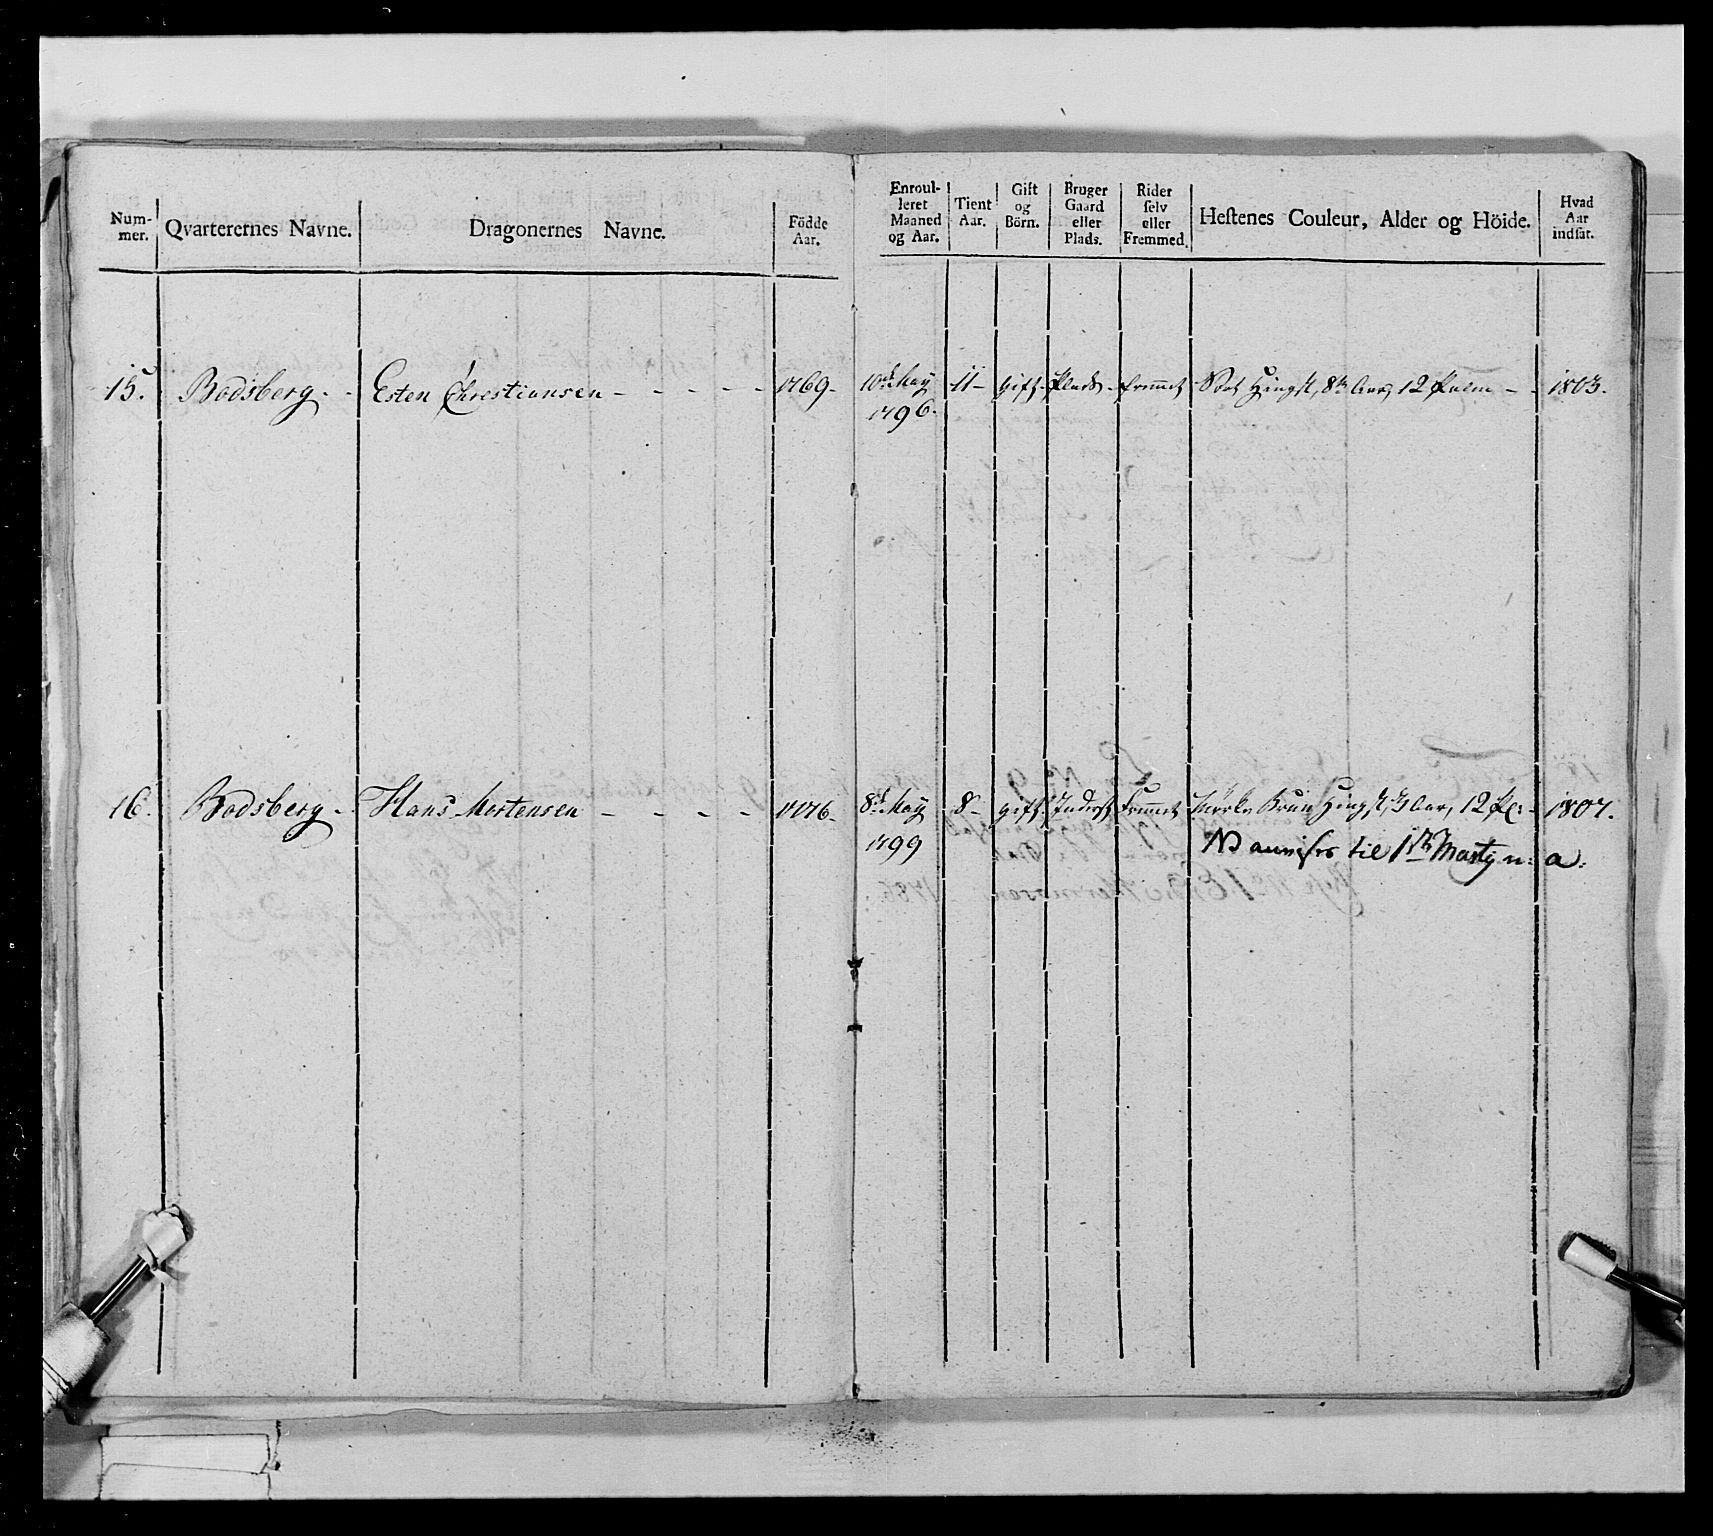 Num-
mer.
Qvarterernes Navne.
Dragonernes Navne.
Födde
Aar.
Enroul-
leret
Maaned
og Aar.
Tient
Aar.
Gift
og
Börn.
Bruger
Gaard
eller
Plads.
Rider
selv
eller
Fremmed.
Hestenes Couleur, Alder og Höide.
Hvad
Aar
indsat.
15. Bodsberg. - Esten Chrestiansen - - - - - 1769. 10de May 11 - gift. Plads - fremet Hingst, 8te Aar, 12 Palm - - 1803.
1796.
16. Bodsberg - Hans Mortensen - - - - 1776. 8de May 8 - gift. Inderst fremet Mörke Brun Hingst, 7 Aar, 12 Pl: - 1807.
1799
til 1ste Marty n: a: